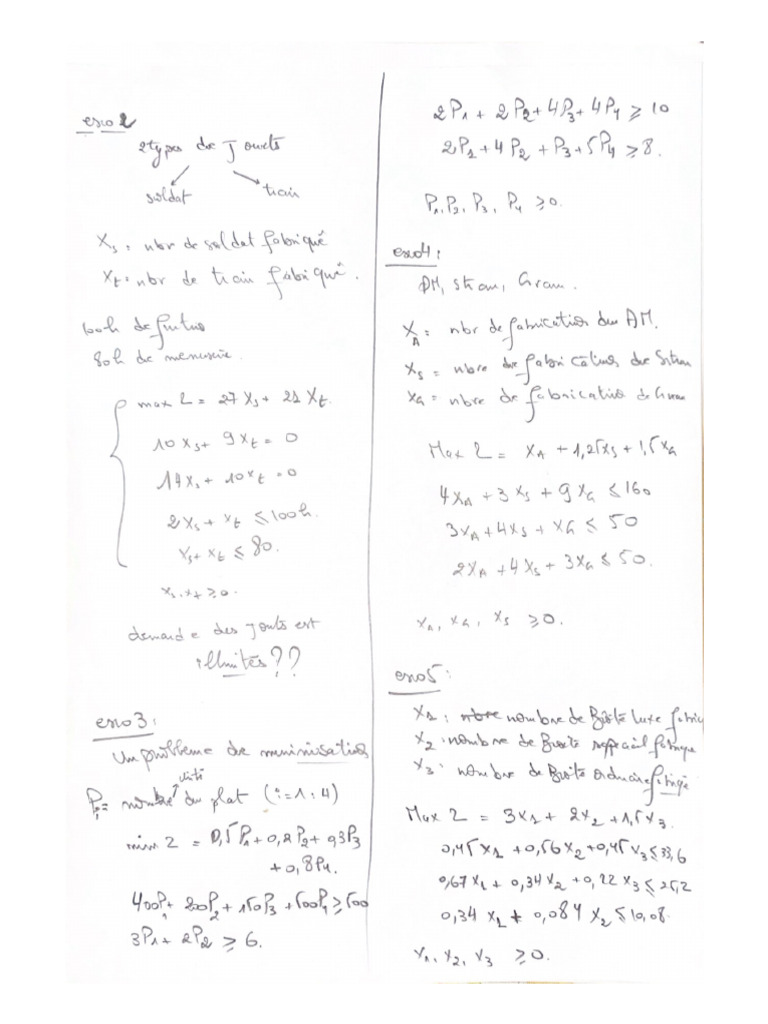 exo 2
2types de Jouets
soldat train
Xs = nbr de soldat fabriqué
Xt = nbr de train fabriqué.
100h de
80h de menuserie.
max Z = 27 Xs + 21 Xt.
10 Xs + 9 Xt = 0
14 Xs + 10 Xt = 0
2Xs + Xt ≤ 100h.
Xs + Xt ≤ 80.
Xs. Xt ≥ 0.
demande des Jouts est
illimités ??
exo 3 :
un probleme de minimisation
Pi = nombre d'unité du plat (i = 1 : 4)
min Z = 0,5P1 + 0,2P2 + 0,3P3
+ 0,8P4.
400P1 + 200P2 + 150P3 + 500P4 ≥ 500
3P1 + 2P2 ≥ 6.
2P1 + 2P2 + 4P3 + 4P4 ≥ 10
2P1 + 4P2 + P3 + 5P4 ≥ 8.
P1, P2, P3, P4 ≥ 0.
exo4 :
AM, Stram, Gram.
XA = nbr de fabrication du AM.
Xs = nbre de fabrication de Stram
XG = nbre de fabrication de Gram
Max Z = XA + 1,25Xs + 1,5XG
4XA + 3Xs + 9XG ≤ 160
3XA + 4Xs + XG ≤ 50
2XA + 4Xs + 3XG ≤ 50.
XA, XG, Xs ≥ 0.
exo5 :
X1 : nbre nombre de Boîte luxe
X2 : nombre de Boite
X3 : nombre de Boîte
Max Z = 3X1 + 2X2 + 1,5X3.
0,45X1 + 0,56X2 + 0,45X3 ≤ 33,6
0,67X1 + 0,34X2 + 0,22X3 ≤ 25,2
0,34X1 + 0,084X2 ≤ 10,08.
X1, X2, X3 ≥ 0.